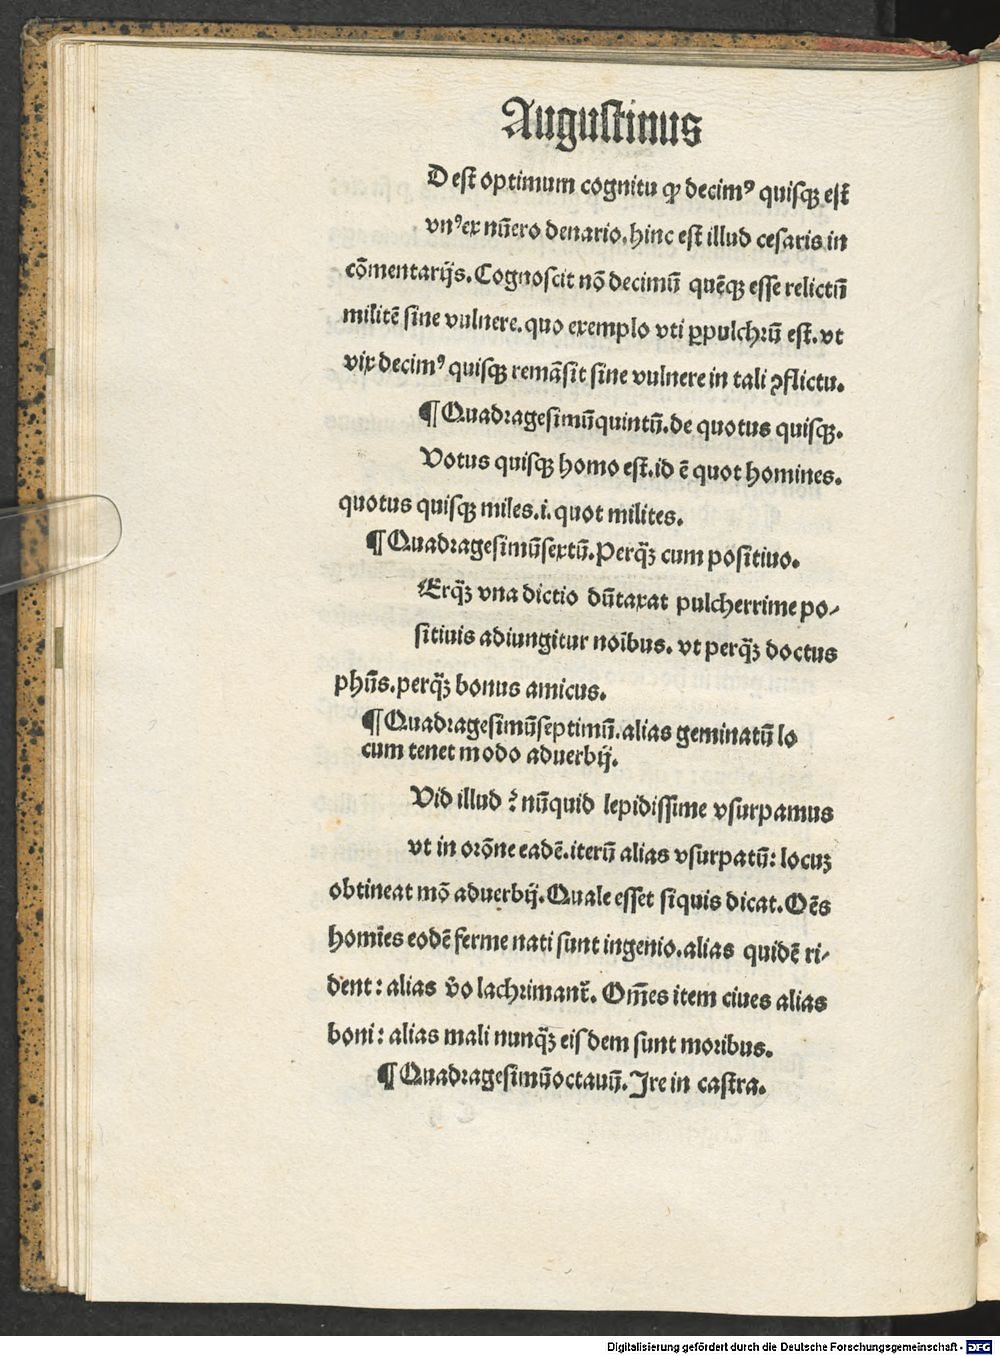 Augustinus
D est optimum cognitu ꝙ decimꝰ quisqꝫ est̄
vnꝰ ex nūero denario. hinc est illud cesaris in
cōmentarijs. Cognoscit nō decimū quēqꝫ esse relictū
militē sine vulnere. quo exemplo vti ꝑpulchrū est. vt
vix decimꝰ quisqꝫ remāsit sine vulnere in tali ꝯflictu.
¶ Quadragesimūquintū. de quotus quisqꝫ.
Votus quisqꝫ homo est. id ē quot homines.
quotus quisqꝫ miles. i. quot milites.
¶ Quadragesimūsextū. Perq̄ꝫ cum positiuo.
Erq̄ꝫ vna dictio dūtaxat pulcherrime po⸗
sitiuis adiungitur noībus. vt perq̄ꝫ doctus
phūs. perq̄ꝫ bonus amicus.
¶ Quadragesimūseptimū. alias geminatū lo
cum tenet modo aduerbij.
Vid illud ? nūquid lepidissime vsurpamus
vt in orōne eadē. iterū alias vsurpatū: locuꝫ
obtineat mō aduerbij. Quale esset siquis dicat. Oēs
homīes eodē ferme nati sunt ingenio. alias quidē ri⸗
dent: alias v̄o lachrimant̄. Om̄es item ciues alias
boni: alias mali nunq̄ꝫ eisdem sunt moribus.
¶ Quadragesimūoctauū. Ire in castra.
Digitalisierung gefördert durch die Deutsche Forschungsgemeinschaft - DFG